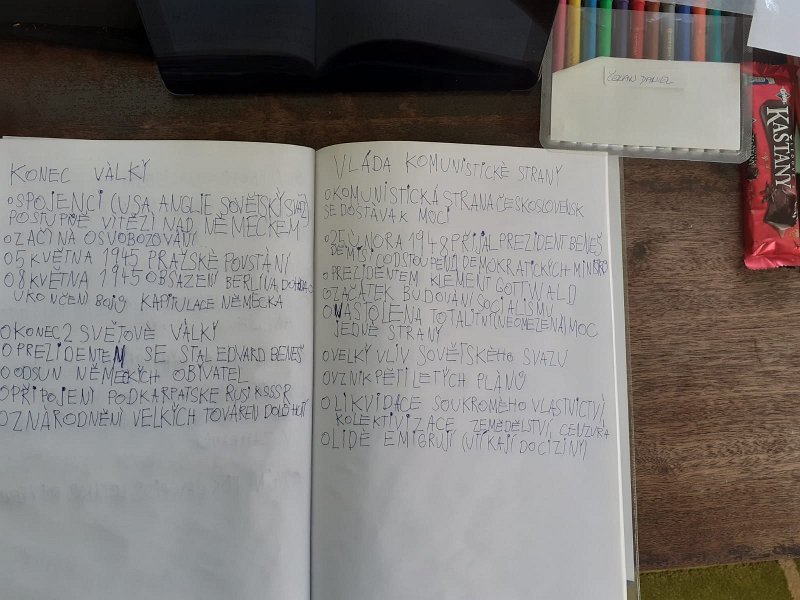 KONEC VÀLKÝ
○SPOJENCI (USA, ANGLIE SOVĚTSKÝ SVAZ)
POSTUPNĚ VÍTĚZÍ NAD NĚMECKEM
○ZAČÍNA OSVOBOZOVÁNÍ
○5 KVĚTNA 1945 PRAŽSKÉ POVSTÁNÍ
○8 KVĚTNA 1945 OBSAZENÍ BERLÍNA, DOHODA O
UKONČENÍ BOJŮ KAPITULACE NĚMECKA
○KONEC 2 SVĚTOVÈ VÀLKÝ
○PREZIDENTEM SE STAL EDVARD BENEŠ
○ODSUN NĚMECKÝCH OBÝVATEL
○PŘIPOJENÍ PODKARPATSKE RUSI K SSSR
○ZNÀRODNĚNÍ VELKÝCH TOVÀREN, DOLŮ HUTÍ
VLÁDA KOMUNISTICKÈ STRANÝ
○KOMUNISTICKÁ STRANA ČESKOSLOVENSK
SE DOSTÁVA K MOCI
○25 ÚNORA 1948 PŘIJAL PREZIDENT BENEŠ
DEMISI (ODSTOUPENÍ) DEMOKRATICKÝCH MINISTRŮ
○PREZIDENTEM KLEMENT GOTTWALD
○ZAČÀTEK BUDOVÀNÍ SOCIALISMU
○NASTOLENA TOTALITNÍ (NEOMEZENÀ) MOC
JEDNÉ STRANÝ
○VELKÝ VLIV SOVĚTSKÉHO SVAZU
○VZNIK PĚTILETÝCH PLÀNŮ
○LIKVIDACE SOUKROMÉHO VLASTNICTVÍ,
KOLEKTIVIZACE ZEMĚDĚLSTVÍ, CENZURA
○LIDÉ EMIGRUJÍ (UTÍKAJÍ DO CIZINY)
DANIEL
KAŠTANY